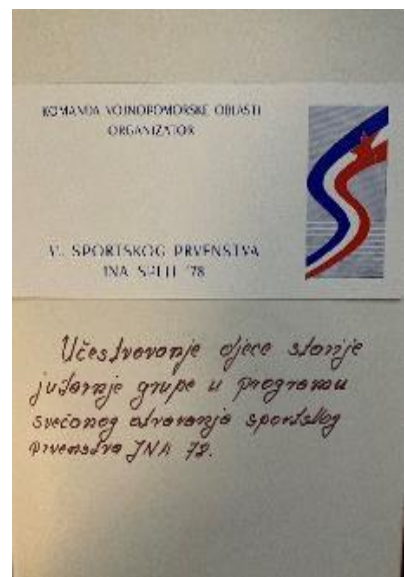 KOMANDA VOJNOPOMORSKE OBLASTI
ORGANIZATOR
SPORTSKOG PRVENSTVA
JNA SPLIT '78
Učestvovanje djece starije
jutarnje grupe u programu
svečanog otvaranja sportskog
prvenstva JNA 78.